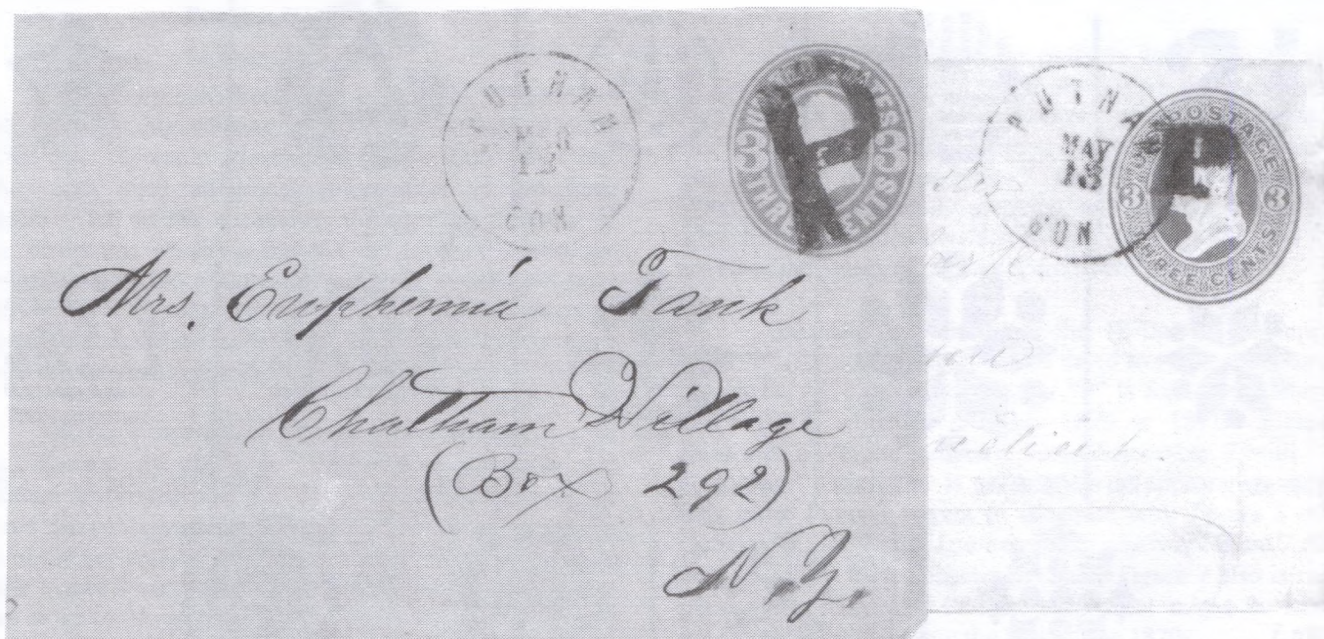 PUTNAM
12
CON
UNITED STATES
3 3
THREE CENTS
P
Mrs. Euphemia Tank
Chatham Village
(Box 292)
N.Y.
PUTNA
MAY
13
CON
U.S. POSTAGE
3 3
THREE CENTS